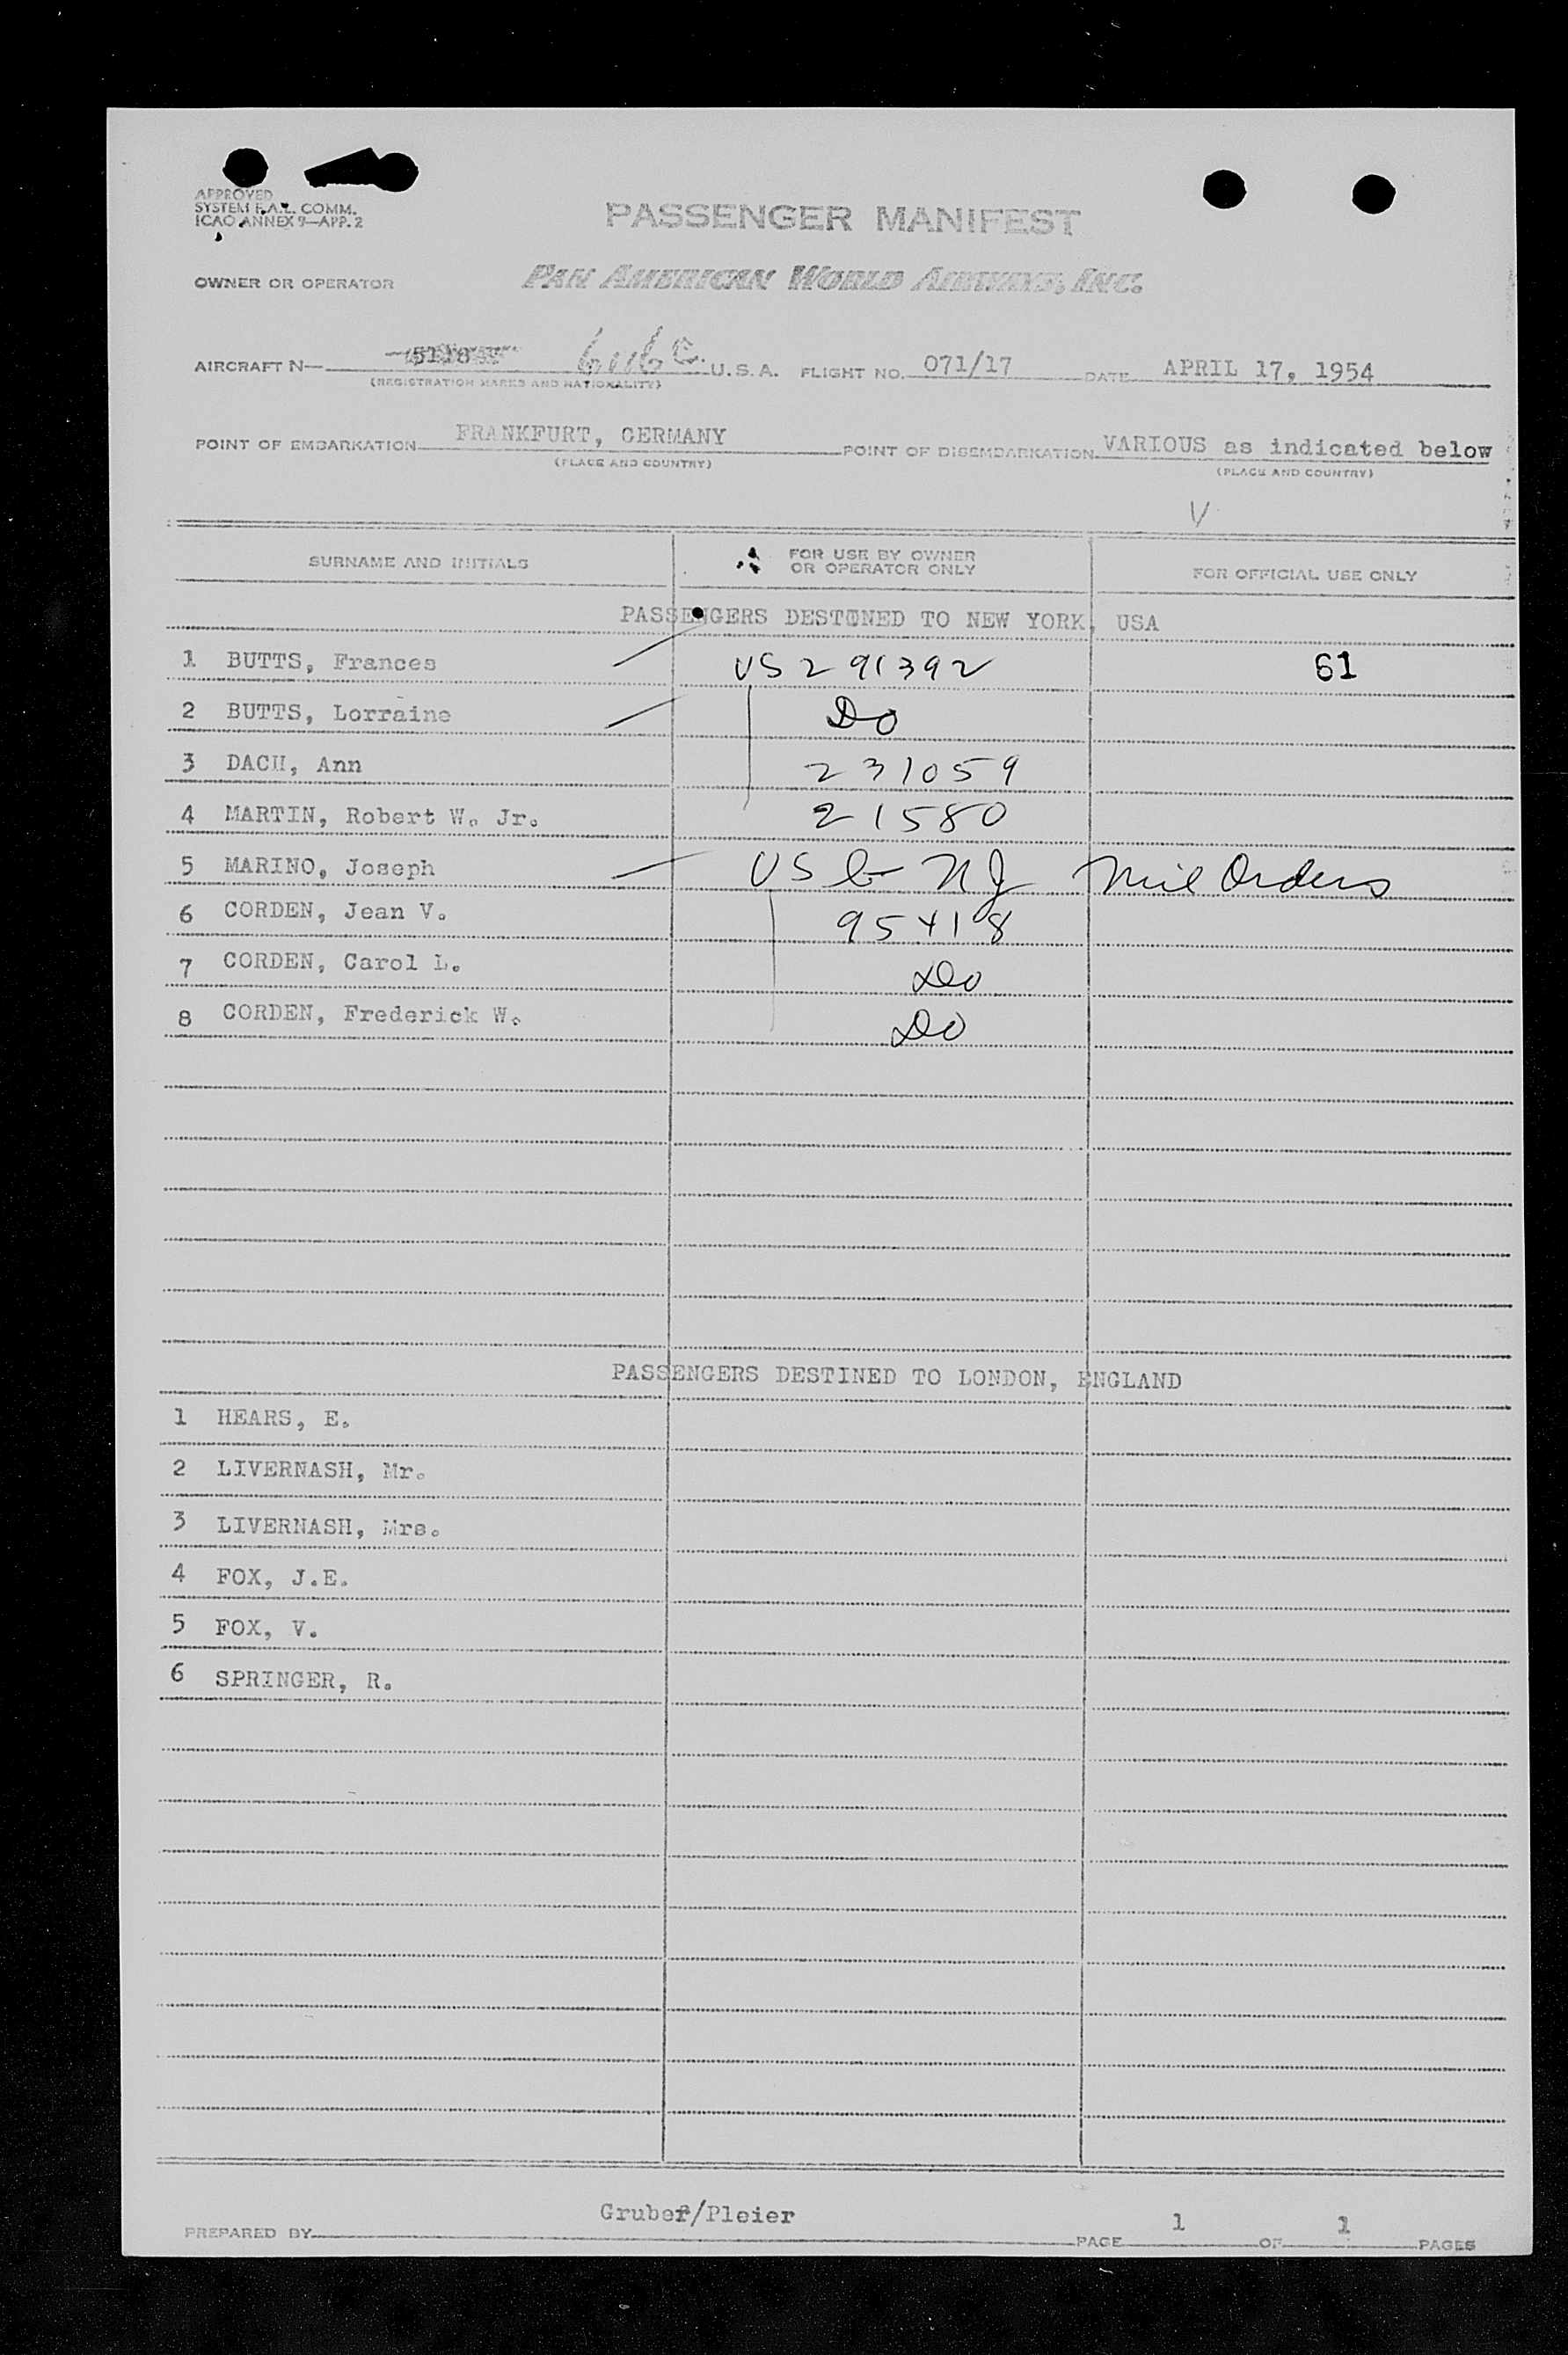 APPROVED
SYSTEM F.A.L. COMM.
ICAO ANNEX 9—APP. 2
PASSENGER MANIFEST
OWNER OR OPERATOR PAN AMERICAN WORLD AIRWAYS, INC.
AIRCRAFT N— U.S.A. FLIGHT NO. 071/17 DATE APRIL 17, 1954
(REGISTRATION MARKS AND NATIONALITY)
POINT OF EMBARKATION FRANKFURT, GERMANY POINT OF DISEMBARKATION VARIOUS as indicated below
(PLACE AND COUNTRY) (PLACE AND COUNTRY)
V
SURNAME AND INITIALS FOR USE BY OWNER OR OPERATOR ONLY FOR OFFICIAL USE ONLY
PASSENGERS DESTINED TO NEW YORK, USA
1 BUTTS, Frances US 291392 61
2 BUTTS, Lorraine Do
3 DACH, Ann 231059
4 MARTIN, Robert W. Jr. 21580
5 MARINO, Joseph US b NJ Mil Orders
6 CORDEN, Jean V. 95418
7 CORDEN, Carol L. Do
8 CORDEN, Frederick W. Do
PASSENGERS DESTINED TO LONDON, ENGLAND
1 HEARS, E.
2 LIVERNASH, Mr.
3 LIVERNASH, Mrs.
4 FOX, J.E.
5 FOX, V.
6 SPRINGER, R.
PREPARED BY Gruber/Pleier PAGE 1 OF 1 PAGES